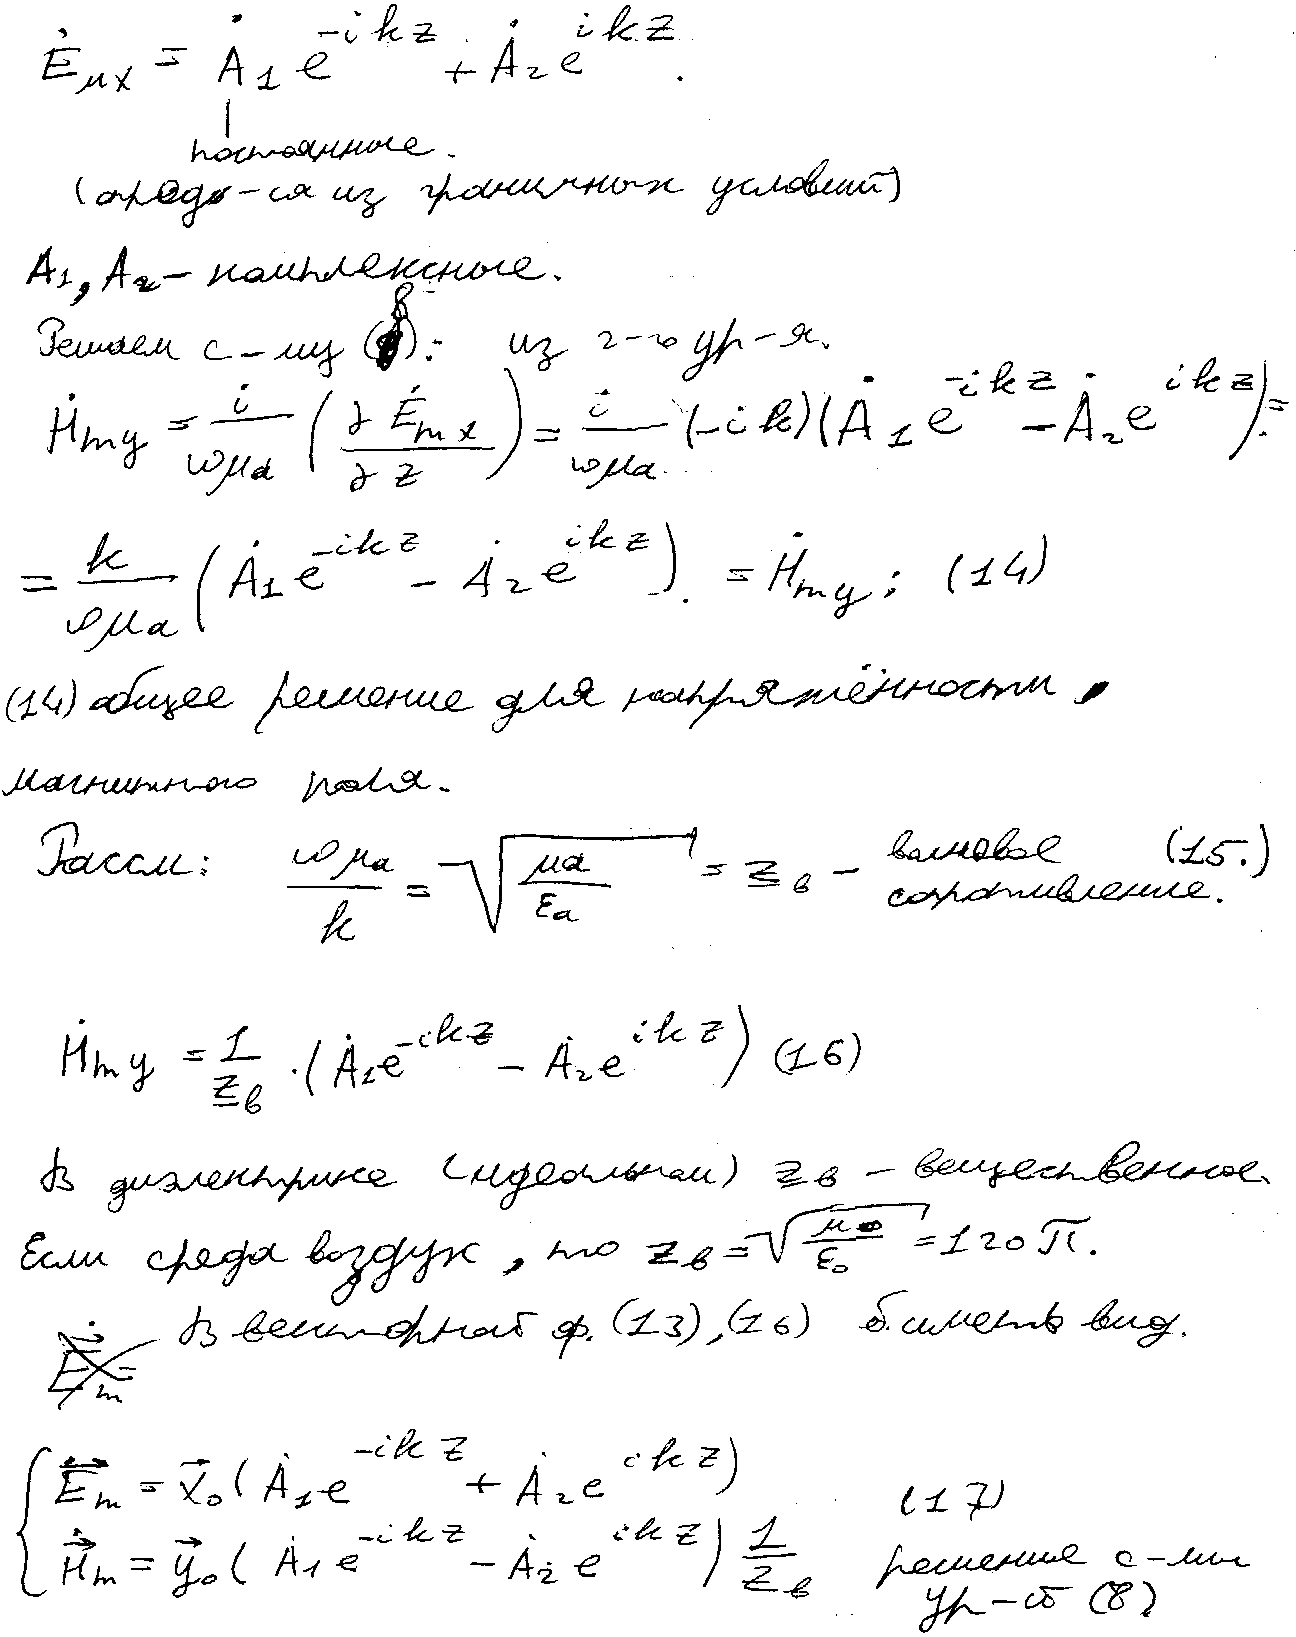 Ėmx = Ȧ1 e^{-ikz} + Ȧ2 e^{ikz}.
постоянные.
(опред-ся из граничных условий)
A1, A2 – комплексные.
Решаем с-му (8): из 2-го ур-я.
Ḣmy = i/(ωμa) (∂Ėmx/∂z) = i/(ωμa) (-ik)(Ȧ1 e^{-ikz} - Ȧ2 e^{ikz}) =
= k/(ωμa) (Ȧ1 e^{-ikz} - Ȧ2 e^{ikz}) = Ḣmy; (14)
(14) общее решение для напряжённости
магнитного поля.
Рассм: ωμa/k = √(μa/εa) = Zв – волновое сопротивление. (15.)
Ḣmy = 1/Zв · (Ȧ1 e^{-ikz} - Ȧ2 e^{ikz}) (16)
В диэлектрике (идеальном) Zв – вещественное.
Если среда воздух, то Zв = √(μ0/ε0) = 120π.
В векторной ф. (13), (16) б. иметь вид.
E⃗m = x⃗0 (Ȧ1 e^{-ikz} + Ȧ2 e^{ikz}) (17)
H⃗m = y⃗0 (Ȧ1 e^{-ikz} - Ȧ2 e^{ikz}) 1/Zв решение с-мы
ур-й (8)